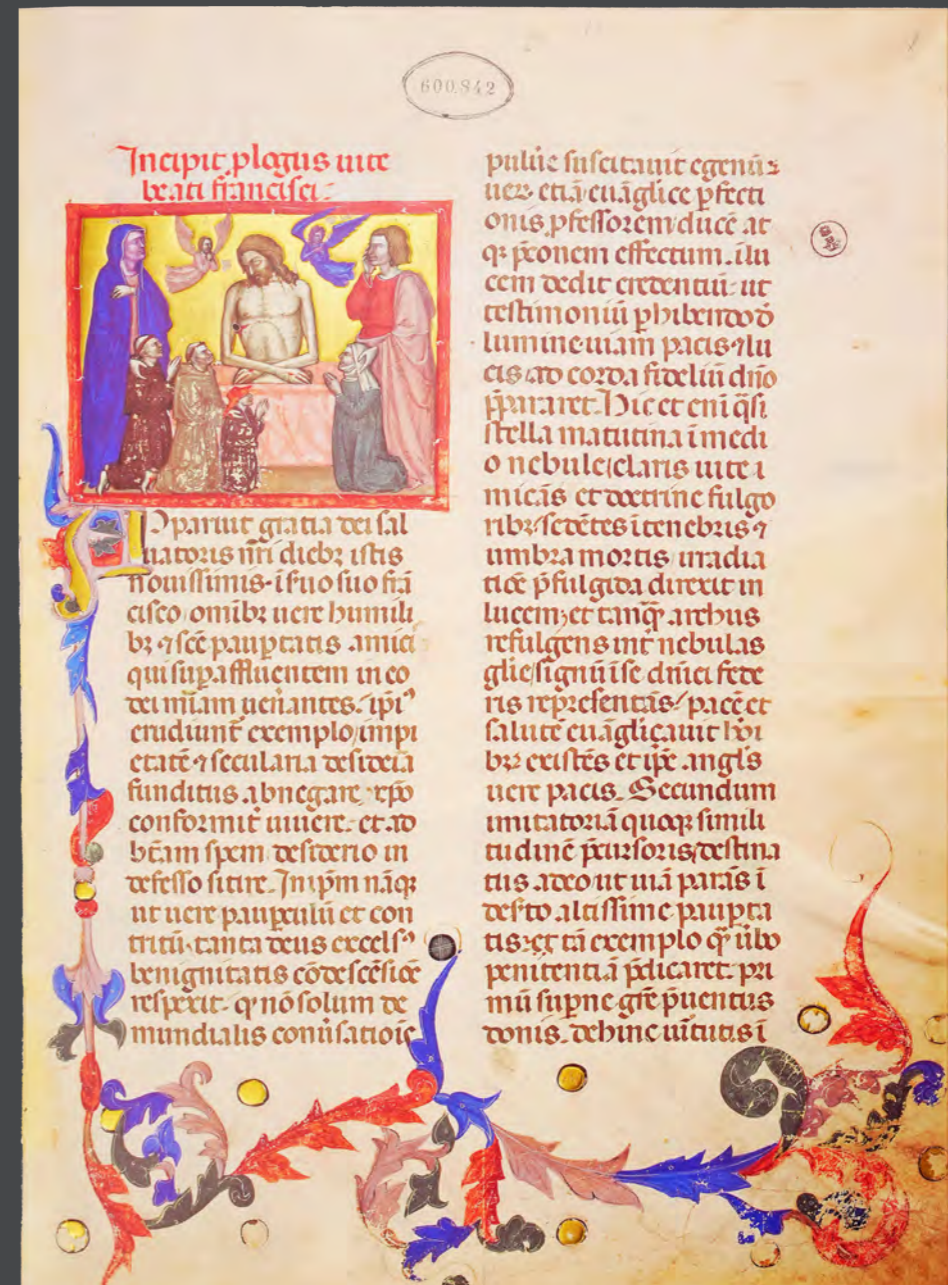 600.842
Incipit plogus uite
beati francisci.
Apparuit gratia dei sal
uatoris nr̄i diebꝫ istis
nouissimis. ī suo fuo frā
cisco omībꝫ uere humili
bꝫ ⁊ scē paup̄tatis amicī
qui suꝑaffluentem in eo
dei mīam uenantes. ipī⁹
erudiunt̄ exemplo impi
etatē ⁊ secularia desideīa
funditus abnegare. xp̄o
conformit̄ uiuere. et ad
bt̄am spem desiderio in
defesso sitire. In ip̄m nāqꝫ
ut uere pauꝑculū et con
tritū. tanta deus excels⁹
benignitatis cōdescēsiōē
respexit. qͥ nō solum de
mundialis conu̓satiōīs
puluē suscitauit egenū ⁊
uerꝫ etiā euāglice ꝑfecti
onis ꝓfessorem ducē at
qꝫ p̄conem effectum. ī lu
cem dedit credentiū. ut
testimoniū ꝑhibendo d̄
lumine uiam pacis ⁊ lu
cis ad corda fideliū dn̄o
p̄pararet. Hic et eni q̄si
stella matutina ī medi
o nebule claris uite
micās et doctrine fulgo
ribꝫ sedētes ī tenebris ⁊
umbra mortis irradia
tiōē p̄fulgida direxit in
lucem. et tanqͣꝫ archus
refulgens int̄ nebulas
glīe signū ī se dn̄ici fede
ris repr̄esentās pacē et
salutē euāglicauit hoī
bꝫ existēs et ip̄e angl̄s
uere pacis. Secundum
imitatoriā quoqꝫ simili
tudinē p̄cursoris destina
tus a deo ut uiā parās ī
des̄to altissime pauꝑta
tis. et tā exemplo qͣꝫ ūbo
penitentiā p̄dicaret. pri
mū suꝑne gr̄e p̄uentus
donis. dehinc uirtutis ī